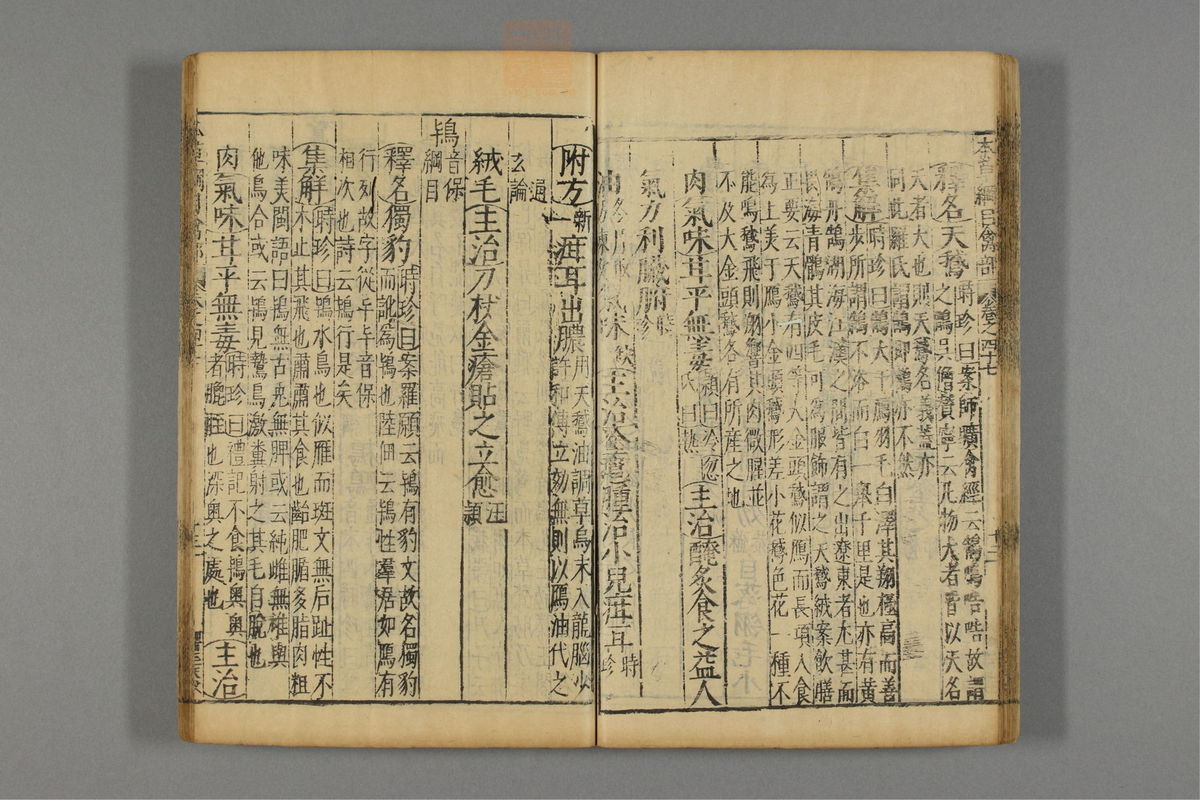 本草綱目禽部 卷之四十七
釋名天鵝時珍曰案師曠禽經云鵠鳴哠哠故謂
之鵠吳僧贊寧云凡物大者皆以天名
天者大也則天鵝名義蓋亦
同此羅氏謂鵠即鶴亦不然
集解時珍曰鵠大于鴈羽毛白澤其翔極高而善
步所謂鵠不浴而白一舉千里是也亦有黃
鵠丹鵠湖海江漢之間皆有之出遼東者尤甚而
畏海青鶻其皮毛可為服飾謂之天鵝絨案飲膳
正要云天鵝有四等大金頭鵝似鴈而長項入食
為上美于鴈小金頭鵝形差小花鵝色花一種不
能鳴鵝飛則翎響其肉微腥並
不及大金頭鵝各有所產之地
肉氣味甘平無毒穎曰冷忽
氏曰熱主治醃炙食之益人
氣力利臟腑時珍
氣味 主治 治小兒疳耳時珍
附方一新疳耳出膿用天鵝油調草烏末入龍腦少
許和傅立効無則以鴈油代之
通
玄論
絨毛主治刀杖金瘡貼之立愈汪
穎
鴇音保
綱目
釋名獨豹時珍曰案羅願云鴇有豹文故名獨豹
而訛為鴇也陸佃云鴇性羣居如鴈有
行列故字從𠤏𠤏音保
相次也詩云鴇行是矣
集解時珍曰鴇水鳥也似雁而斑文無后趾性不
木止其飛也肅肅其食也齝肥腯多脂肉粗
味美閩語曰鴇無舌兔無脾或云純雌無雄與
他鳥合或云鴇見鷙鳥激糞射之其毛自脫也
肉氣味甘平無毒時珍曰禮記不食鴇奧奧
者 也深奧之處也主治